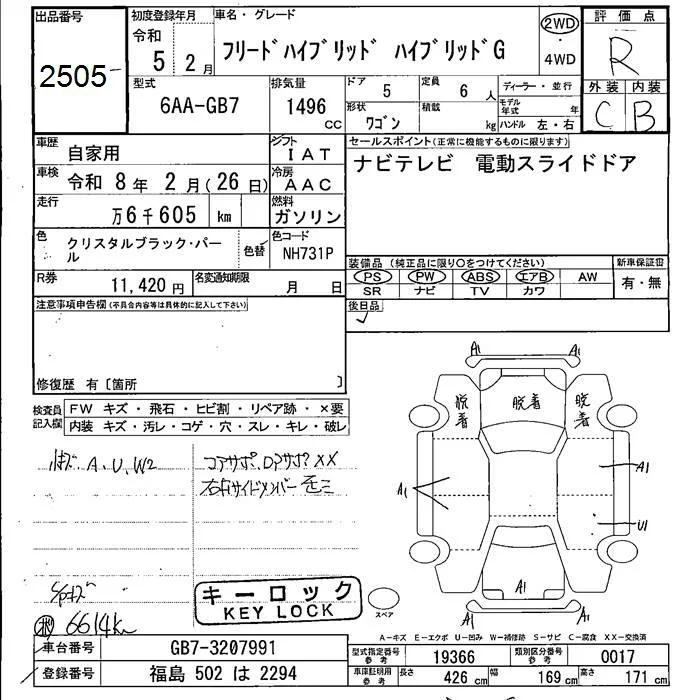 出品番号
2505
初度登録年月
令和
5 2月
車名・グレード
フリードハイブリッド ハイブリッドG
2WD
・
4WD
評価点
R
外装 内装
C B
型式
6AA-GB7
排気量
1496
CC
ドア
5
定員
6 人
形状
ワゴン
積載
kg
ディーラー・並行
モデル年式
年
ハンドル 左・右
車歴
自家用
シフト
IAT
車検
令和 8年 2月(26日)
冷房
AAC
走行
万6千605 km
燃料
ガソリン
色
クリスタルブラック・パール
色替
色コード
NH731P
R券
11,420 円
名変通知期限
月 日
セールスポイント(正常に機能するものに限ります)
ナビテレビ 電動スライドドア
装備品(純正品に限り○をつけてください)
PS PW ABS エアB AW
SR ナビ TV カワ
新車保証書
有・無
後日品
✓
注意事項申告欄(不具合内容等は具体的に記入して下さい)
修復歴 有〔箇所 〕
検査員記入欄
FW キズ・飛石・ヒビ割・リペア跡・×要
内装 キズ・汚レ・コゲ・穴・スレ・キレ・破レ
A、U、W2
コアサポ、XX
右サイドメンバー
6614km
キーロック
KEY LOCK
A1 A1
脱着 脱着 脱着
A1
A1
U1
A1
A1 A1
スペア
A-キズ E-エクボ U-凹み W-補修跡 S-サビ C-腐食 XX-交換済
車台番号
GB7-3207991
登録番号
福島 502 は 2294
型式指定番号
参考
19366
類別区分番号
参考
0017
車庫証明用
参考
長さ
426 cm
幅
169 cm
高さ
171 cm